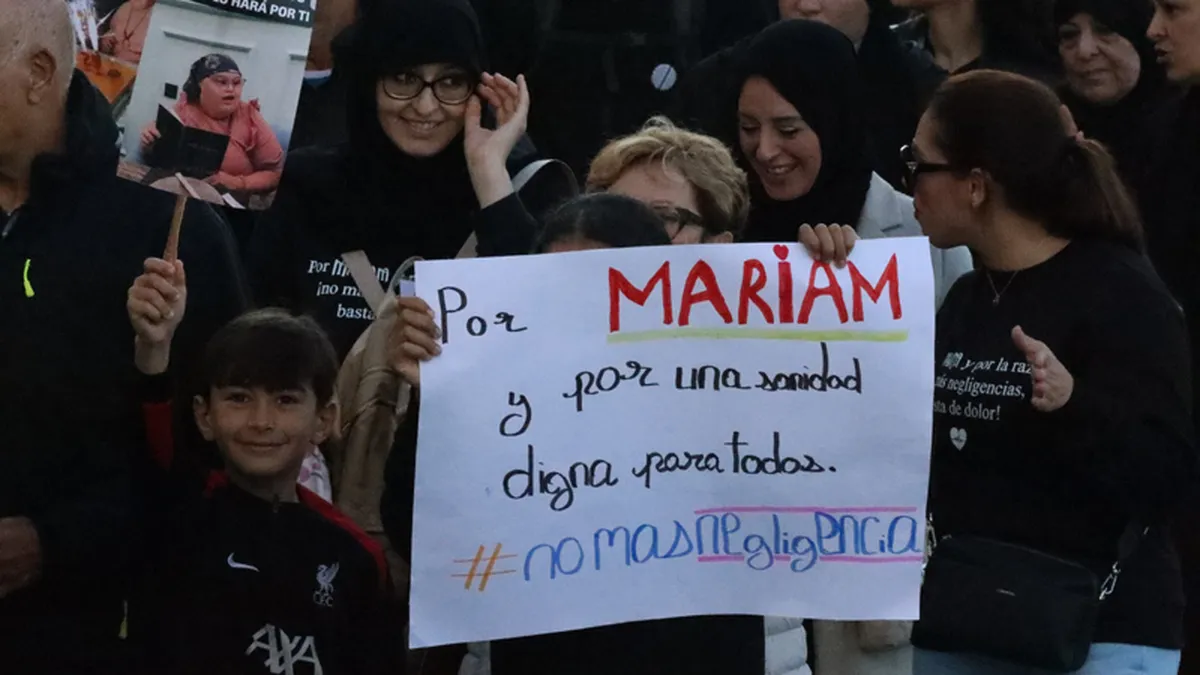 HARÁ POR TI
Por MARIAM
y por una sanidad
digna para todos.
#nomasnegligencia
Por
¡no
basta
y por la raz
negligencias,
de dolor!
LFC
AXA